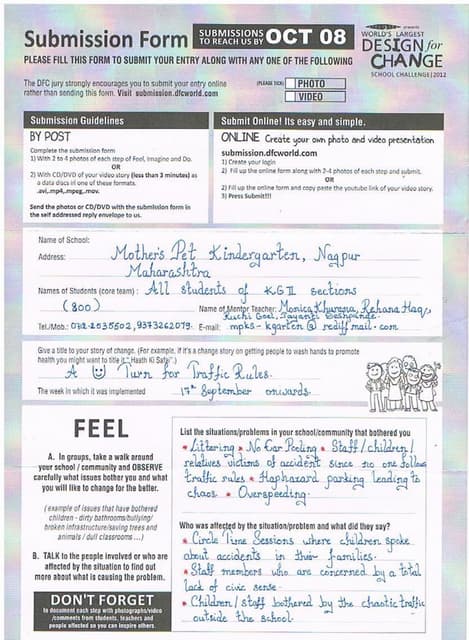 Submission Form
SUBMISSIONS
TO REACH US BY OCT 08
WORLD'S LARGEST
DESIGN for
CHANGE
SCHOOL CHALLENGE | 2012
PLEASE FILL THIS FORM TO SUBMIT YOUR ENTRY ALONG WITH ANY ONE OF THE FOLLOWING
The DFC jury strongly encourages you to submit your entry online
rather than sending this form. Visit submission.dfcworld.com
(PLEASE TICK)
PHOTO
VIDEO
Submission Guidelines
BY POST
Complete the submission form
1) With 2 to 4 photos of each step of Feel, Imagine and Do.
OR
2) With CD/DVD of your video story (less than 3 minutes) as
a data discs in one of these formats.
.avi,.mp4,.mpeg,.mov.
Send the photos or CD/DVD with the submission form in
the self addressed reply envelope to us.
Submit Online! Its easy and simple.
ONLINE Create your own photo and video presentation
submission.dfcworld.com
1) Create your login
2) Fill up the online form along with 2-4 photos of each step and submit.
OR
2) Fill up the online form and copy paste the youtube link of your video story.
3) Press Submit!!!
Name of School:
Address: Mother's Pet Kindergarten, Nagpur
Maharashtra
Names of Students (core team) : All students of KG II sections
(800)
Name of Mentor Teacher: Monica Khurana, Rehana Haq,
Ruchi Goel, Jayanti Deshpande
Tel./Mob.: 0712-2035502, 9373262079 E-mail: mpks-kgarten@rediffmail.com
Give a title to your story of change. (For example, if it's a change story on getting people to wash hands to promote
health you might want to title it "Haath Ki Safai".)
A Turn for Traffic Rules.
The week in which it was implemented 17th September onwards
FEEL
A. In groups, take a walk around
your school / community and OBSERVE
carefully what issues bother you and what
you will like to change for the better.
( example of issues that have bothered
children - dirty bathrooms/bullying/
broken infrastructure/saving trees and
animals / dull classrooms ...)
B. TALK to the people involved or who are
affected by the situation to find out
more about what is causing the problem.
DON'T FORGET
to document each step with photographs/video
/comments from students, teachers and
people affected so you can inspire others
List the situations/problems in your school/community that bothered you
* Littering * No Car Pooling * Staff/children/
relatives victims of accident since no one follows
traffic rules * Haphazard parking leading to
chaos * Overspeeding.
Who was affected by the situation/problem and what did they say?
* Circle Time Sessions where children spoke
about accidents in their families.
* Staff members who are concerned by a total
lack of civic sense.
* Children/staff bothered by the chaotic traffic
outside the school.